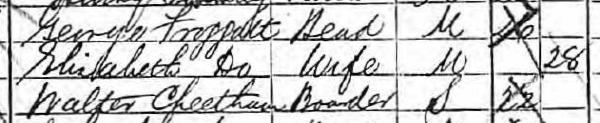 George Froggatt Head M
Elizabeth Do Wife M 28
Walter Cheetham Boarder S 22